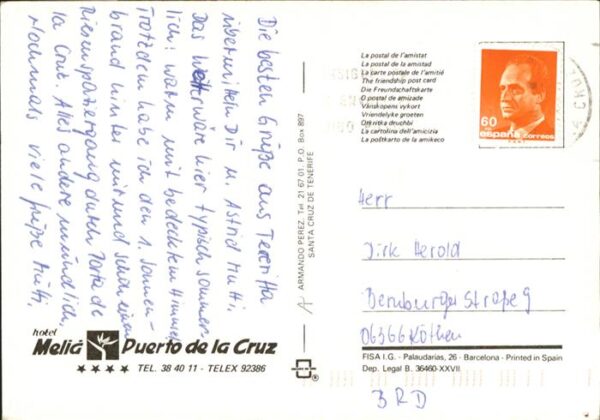 Die besten Grüße aus Teneriffa
übermitteln Dir u. Astrid Mutti.
Das Wetter wäre hier typisch sommer-
lich: warm mit bedecktem Himmel
Trotzdem habe ich den 1. Sonnen-
brand hinter mir und schon einen
Riesenspaziergang durch Porto de
la Cruz. Alles andere mündlich
Nochmals viele Grüße Mutti.
hotel
Meliá Puerto de la Cruz
TEL. 38 40 11 - TELEX 92386
ARMANDO PEREZ. Tel. 21 67 01. P.O. Box 897
SANTA CRUZ DE TENERIFE
La postal de l'amistat
La postal de la amistad
La carte postale de l'amitié
The friendship post card
Die Freundschaftskarte
O postal de amizade
Vänskapens vykort
Vriendelijke groeten
Otkritka druchbi
La cartolina dell'amicizia
La poŝtkarto de la amikeco
60
españa correos
Herr
Dirk Herold
Bernburger Straße 9
06366 Köthen
FISA I.G. - Palaudarias, 26 - Barcelona - Printed in Spain
Dep. Legal B. 36460-XXVII
BRD